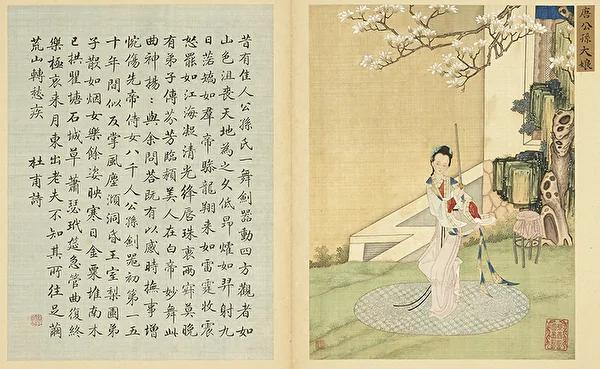 唐公孫大娘
昔有佳人公孫氏一舞劍器動四方觀者如
山色沮喪天地為之久低昂㸌如羿射九
日落矯如羣帝驂龍翔來如雷霆收震
怒罷如江海凝清光絳唇珠袖兩寂寞晚
有弟子傳芬芳臨潁美人在白帝妙舞此
曲神揚〻與余問荅既有以感時撫事增
惋傷先帝侍女八千人公孫劍器初第一五
十年間似反掌風塵澒洞昏王室梨園弟
子散如烟女樂餘姿映寒日金粟堆南木
已拱瞿塘石城草蕭瑟玳筵急管曲復終
樂極哀來月東出老夫不知其所往足繭
荒山轉愁疾
杜甫詩